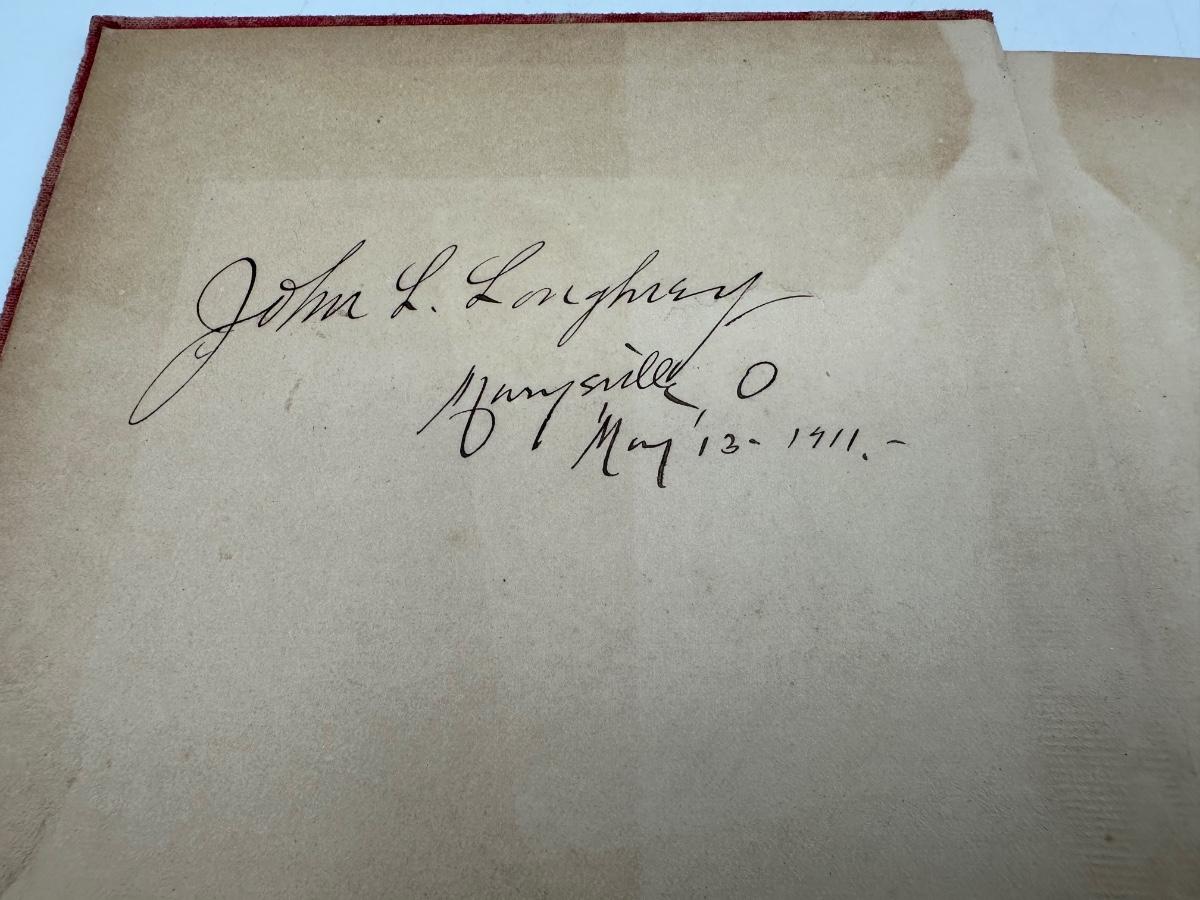 John L. Loughrey
Marysville O
May 13 - 1911. -